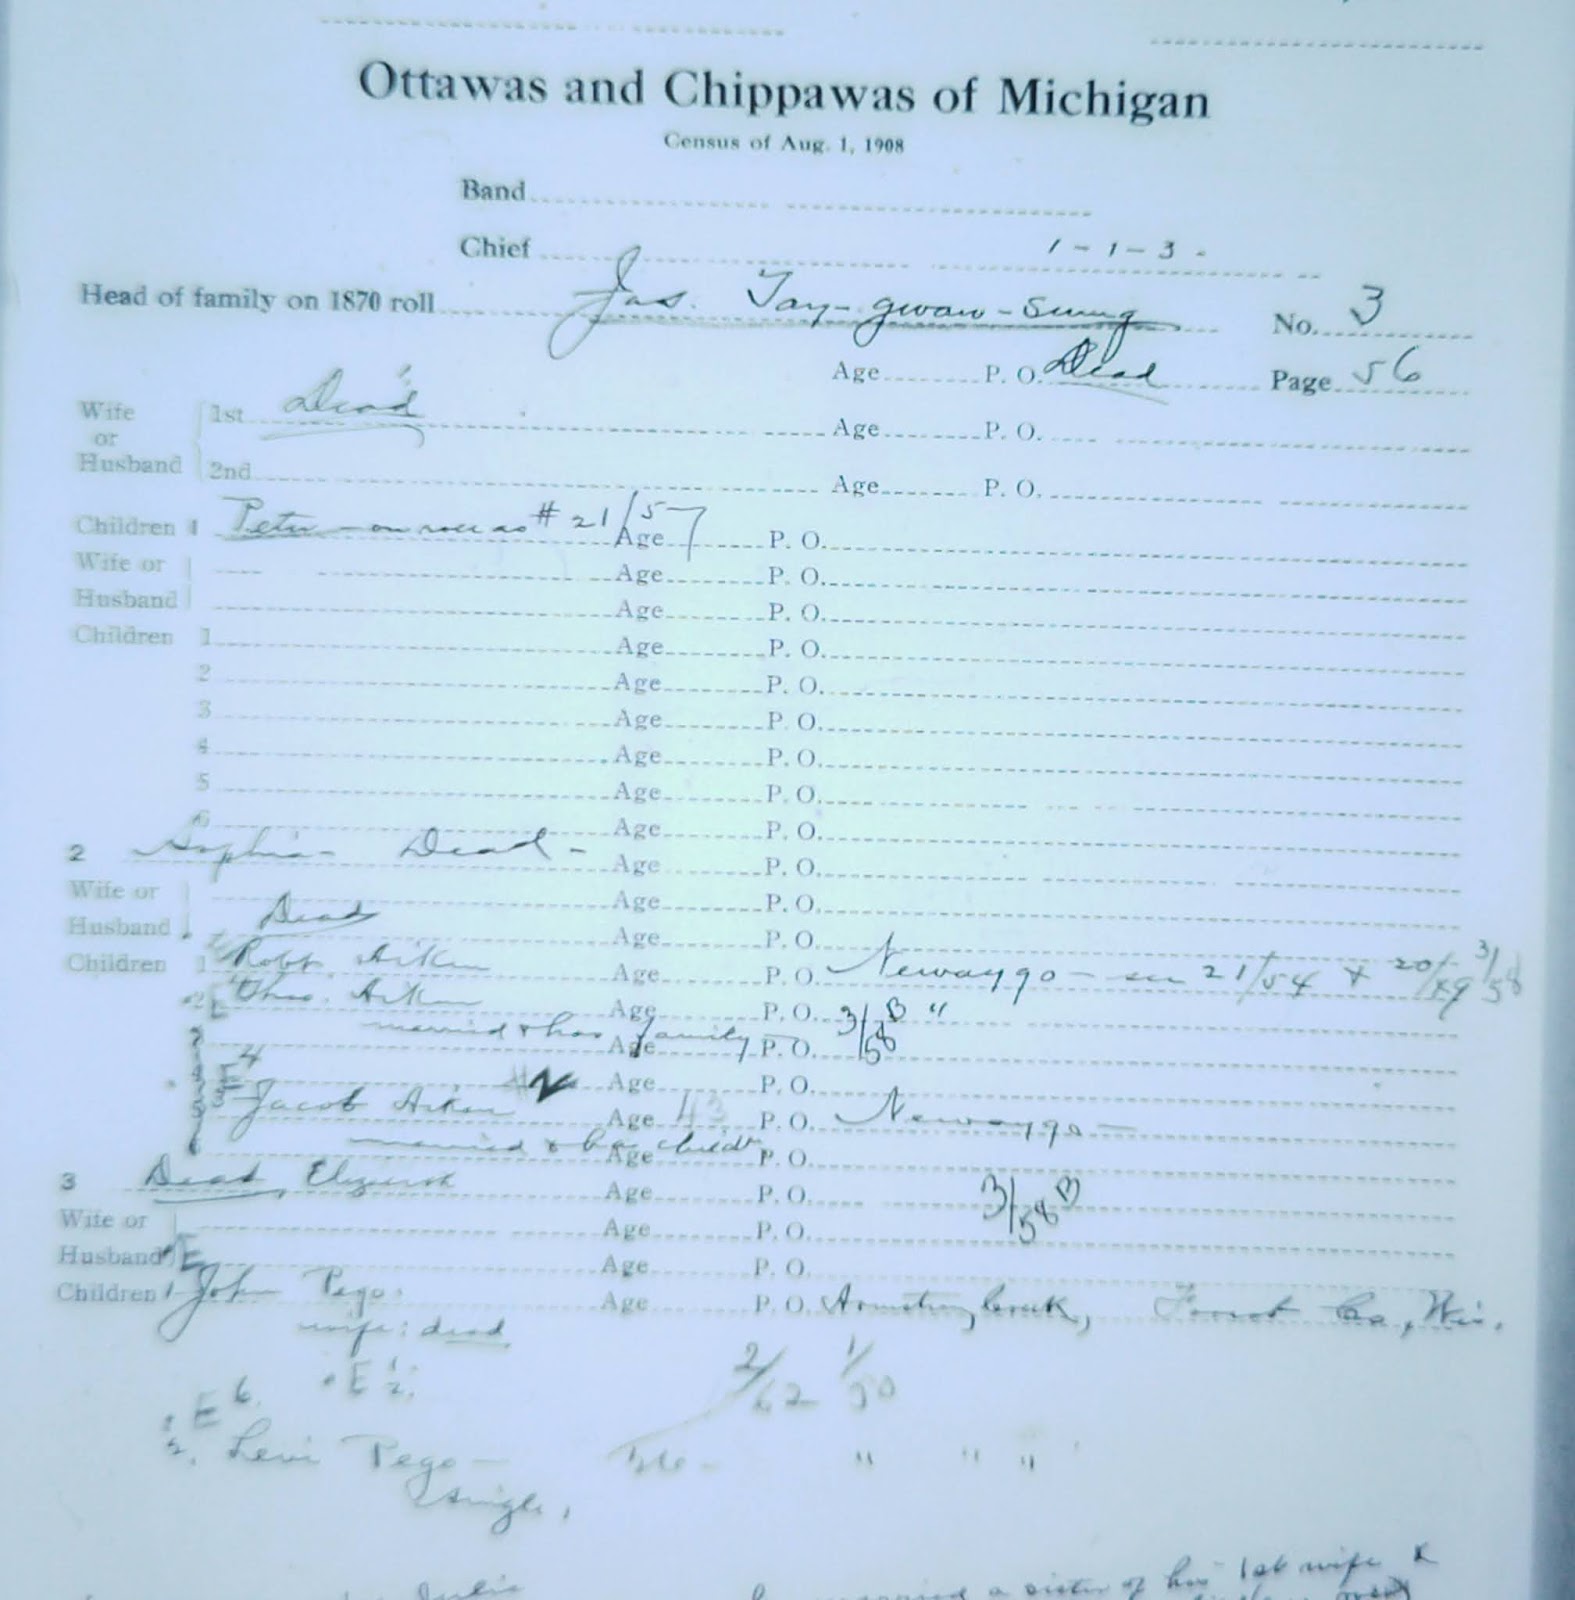 Ottawas and Chippawas of Michigan
Census of Aug. 1, 1908
Band
Chief 1-1-3-
Head of family on 1870 roll Jas. Tay-gwaw-sung No. 3
Age P. O. Dead Page 56
Wife or Husband 1st Dead Age P. O.
2nd Age P. O.
Children 1 Peter - on roll as # 21/57 Age P. O.
Wife or Age P. O.
Husband Age P. O.
Children 1 Age P. O.
2 Age P. O.
3 Age P. O.
4 Age P. O.
5 Age P. O.
6 Age P. O.
2 Sophia - Dead - Age P. O.
Wife or Age P. O.
Husband Dead Age P. O.
Children 1 Robt. Aiken Age P. O. Newaygo - see 21/54 + 20/49 3/58
2 Thos. Aiken Age P. O. 3/58 B "
3 married & has family Age P. O.
4 Age P. O.
5 Jacob Aiken Age 43 P. O. Newaygo -
6 married & has child Age P. O.
3 Dead, Age P. O. 3/58 B
Wife or Age P. O.
Husband E Age P. O.
Children 1 John Pego. Age P. O. Armstrong Creek, Forest Co., Wis.
wife: dead
E 1/2. 2/62 1/50
E 6.
2. Levi Pego - " " "
Single,
Julia married a sister of his 1st wife &